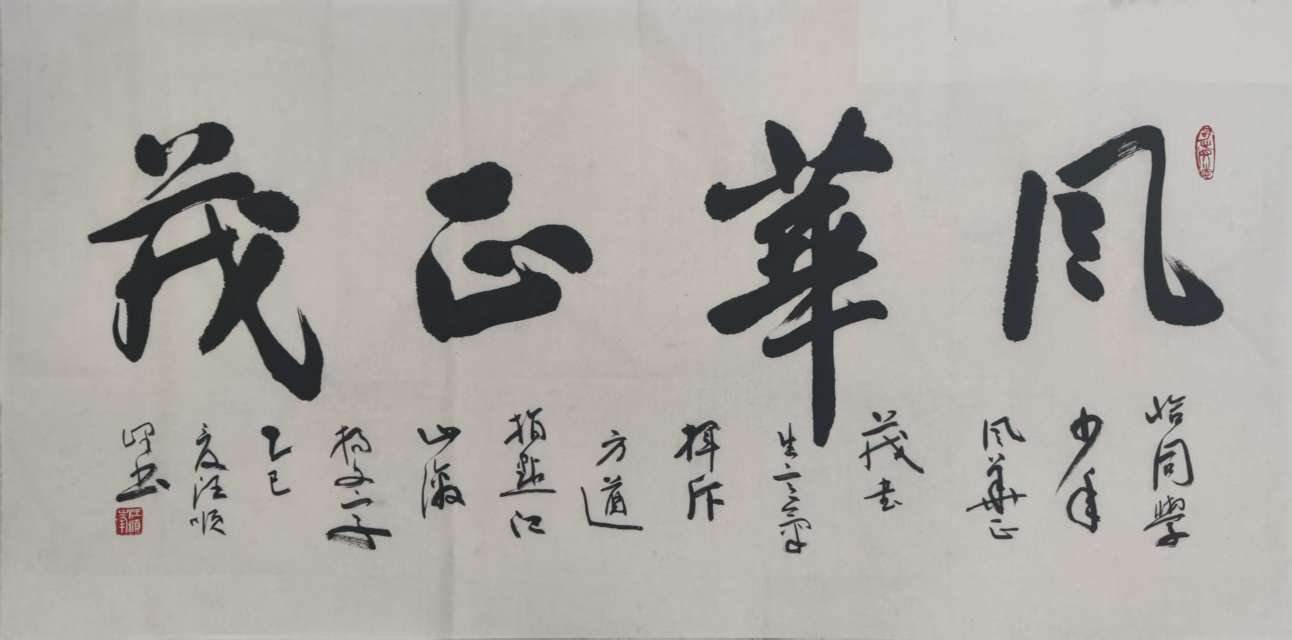 風華正茂
恰同學
少年
風華正
茂書
生意氣
揮斥
方遒
指點江
山激
揚文字
乙巳
夏汪順
書